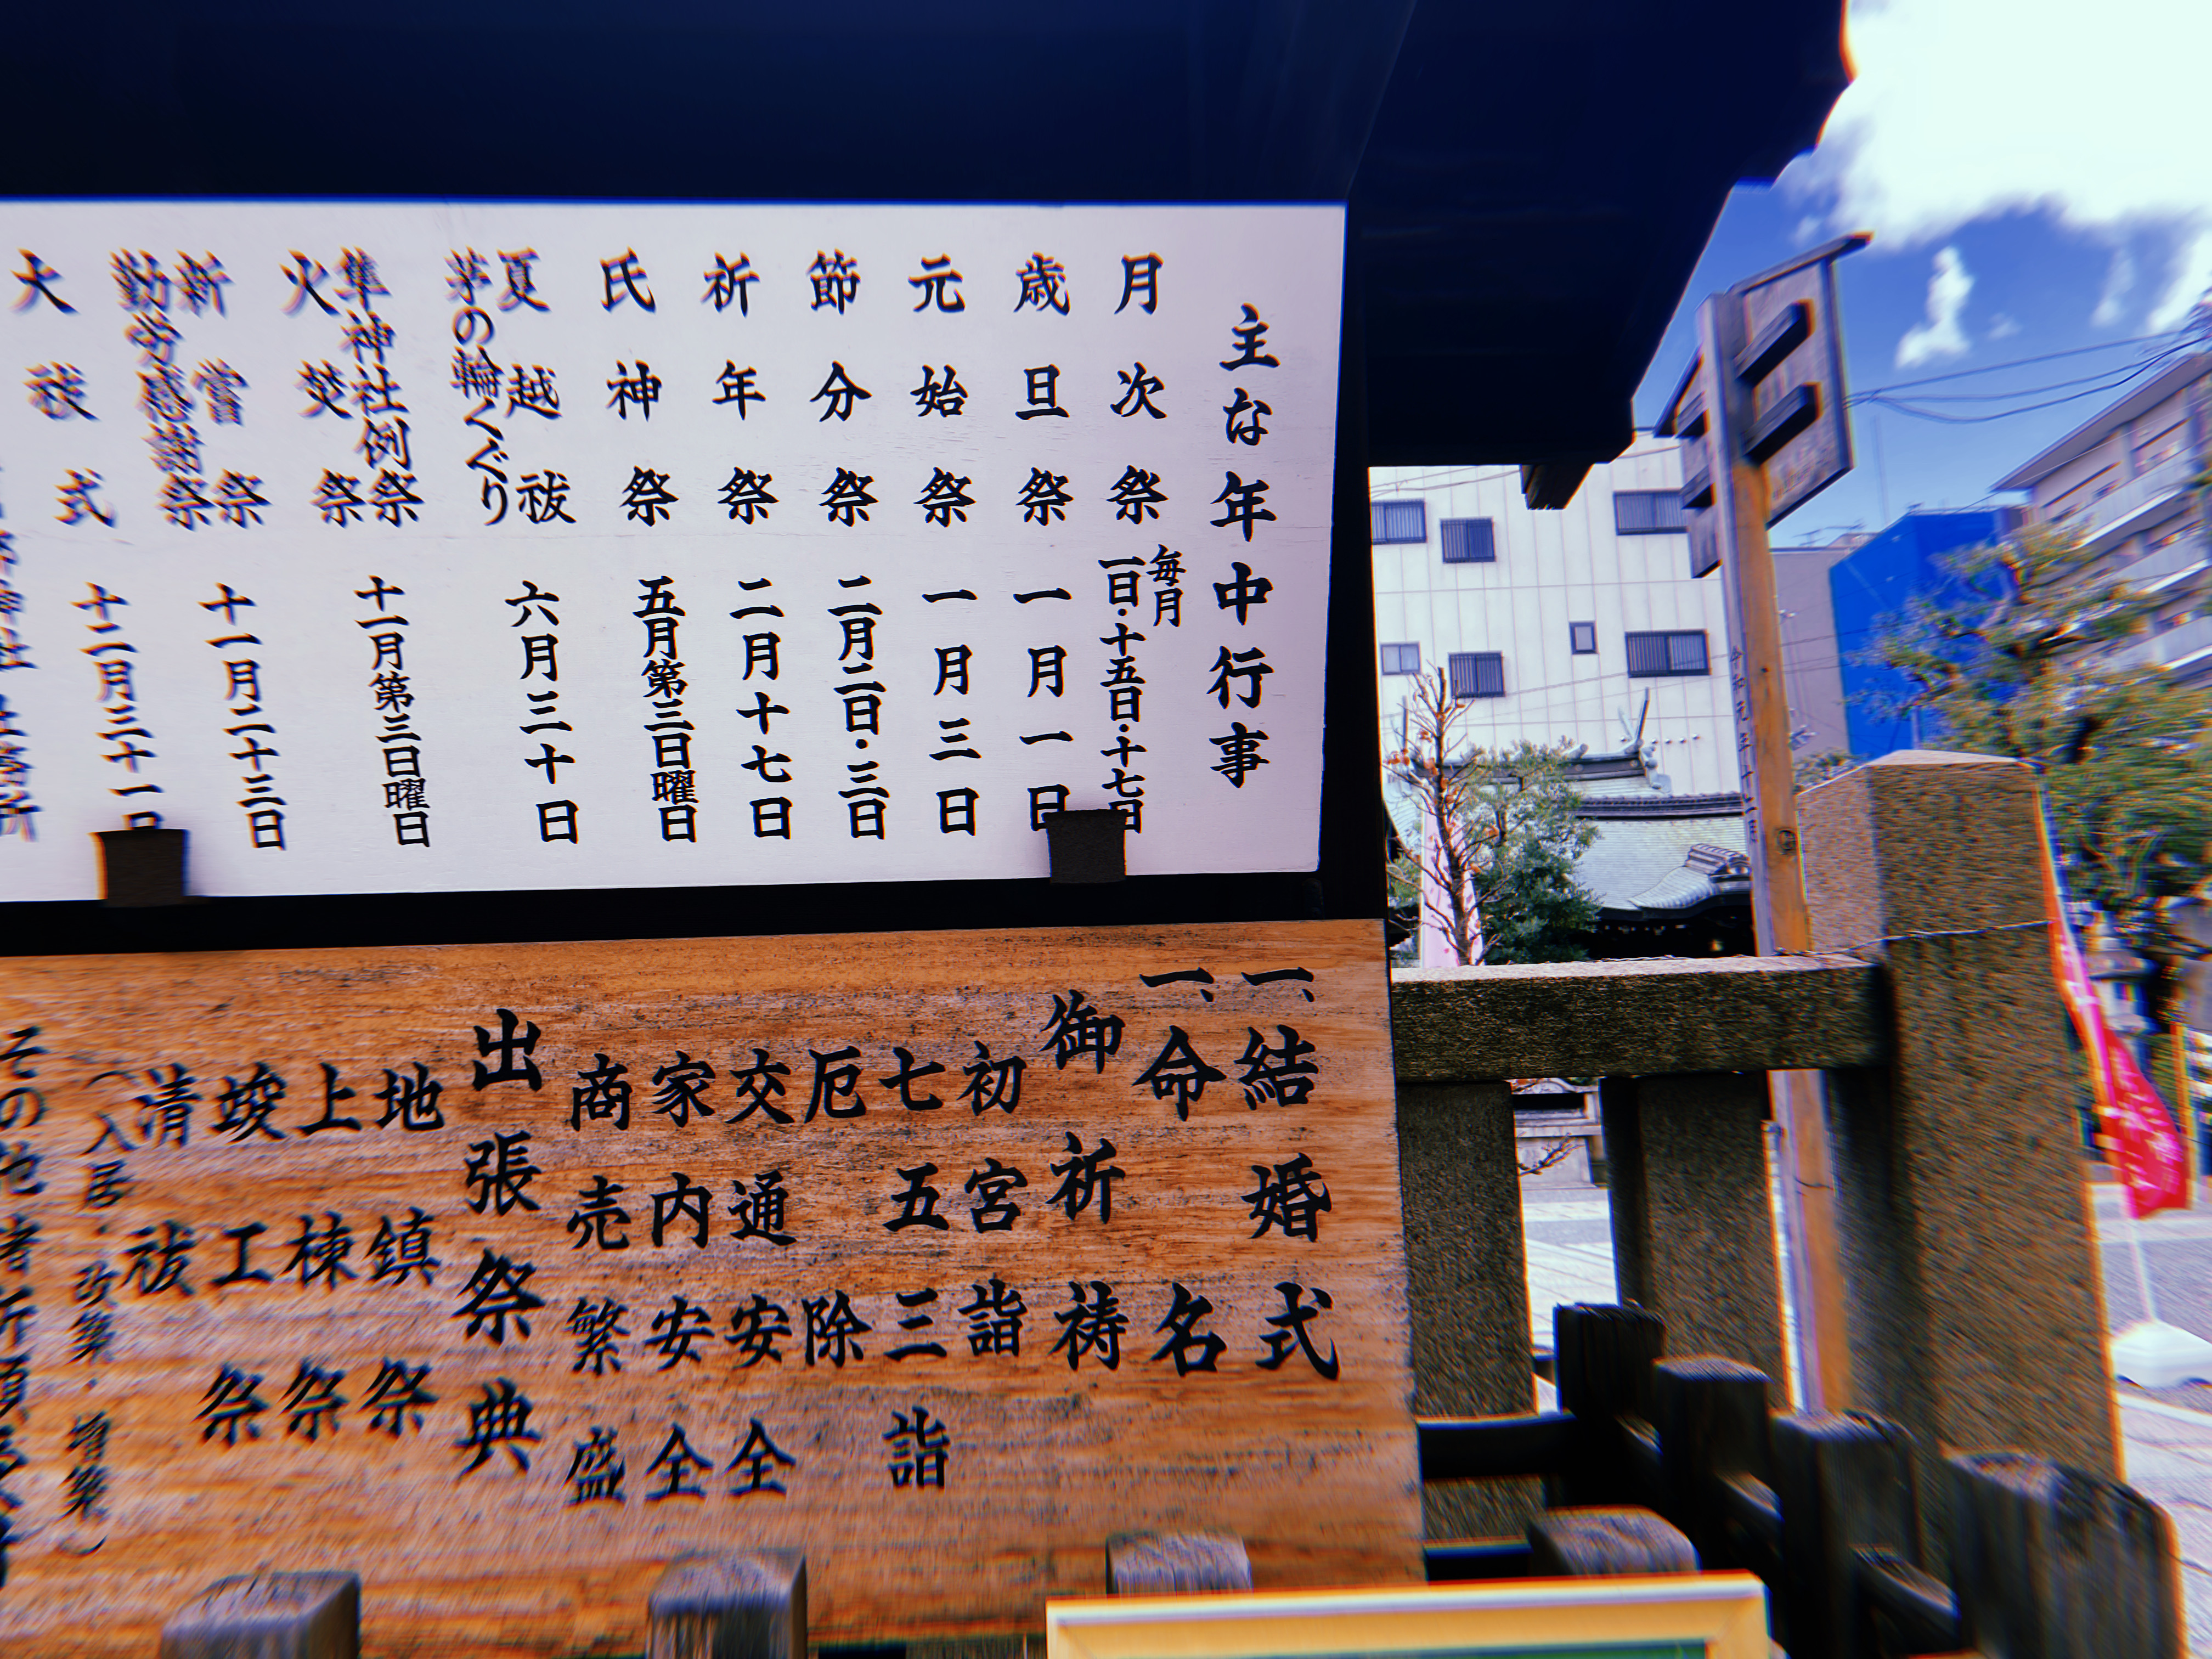 主な年中行事
月次祭 毎月一日・十五日・十七日
歳旦祭 一月一日
元始祭 一月三日
節分祭 二月二日・三日
祈年祭 二月十七日
氏神祭 五月第三日曜日
夏越祓 六月三十日
茅の輪くぐり
隼神社例祭 十一月第三日曜日
火焚祭
新嘗祭 十一月二十三日
勤労感謝祭
大祓式 十二月三十一日
一、結婚式
一、命名
御祈祷
初宮詣
七五三詣
厄除
交通安全
家内安全
商売繁盛
出張祭典
地鎮祭
上棟祭
竣工祭
清祓
(入居・改築・増築)
その他諸祈願